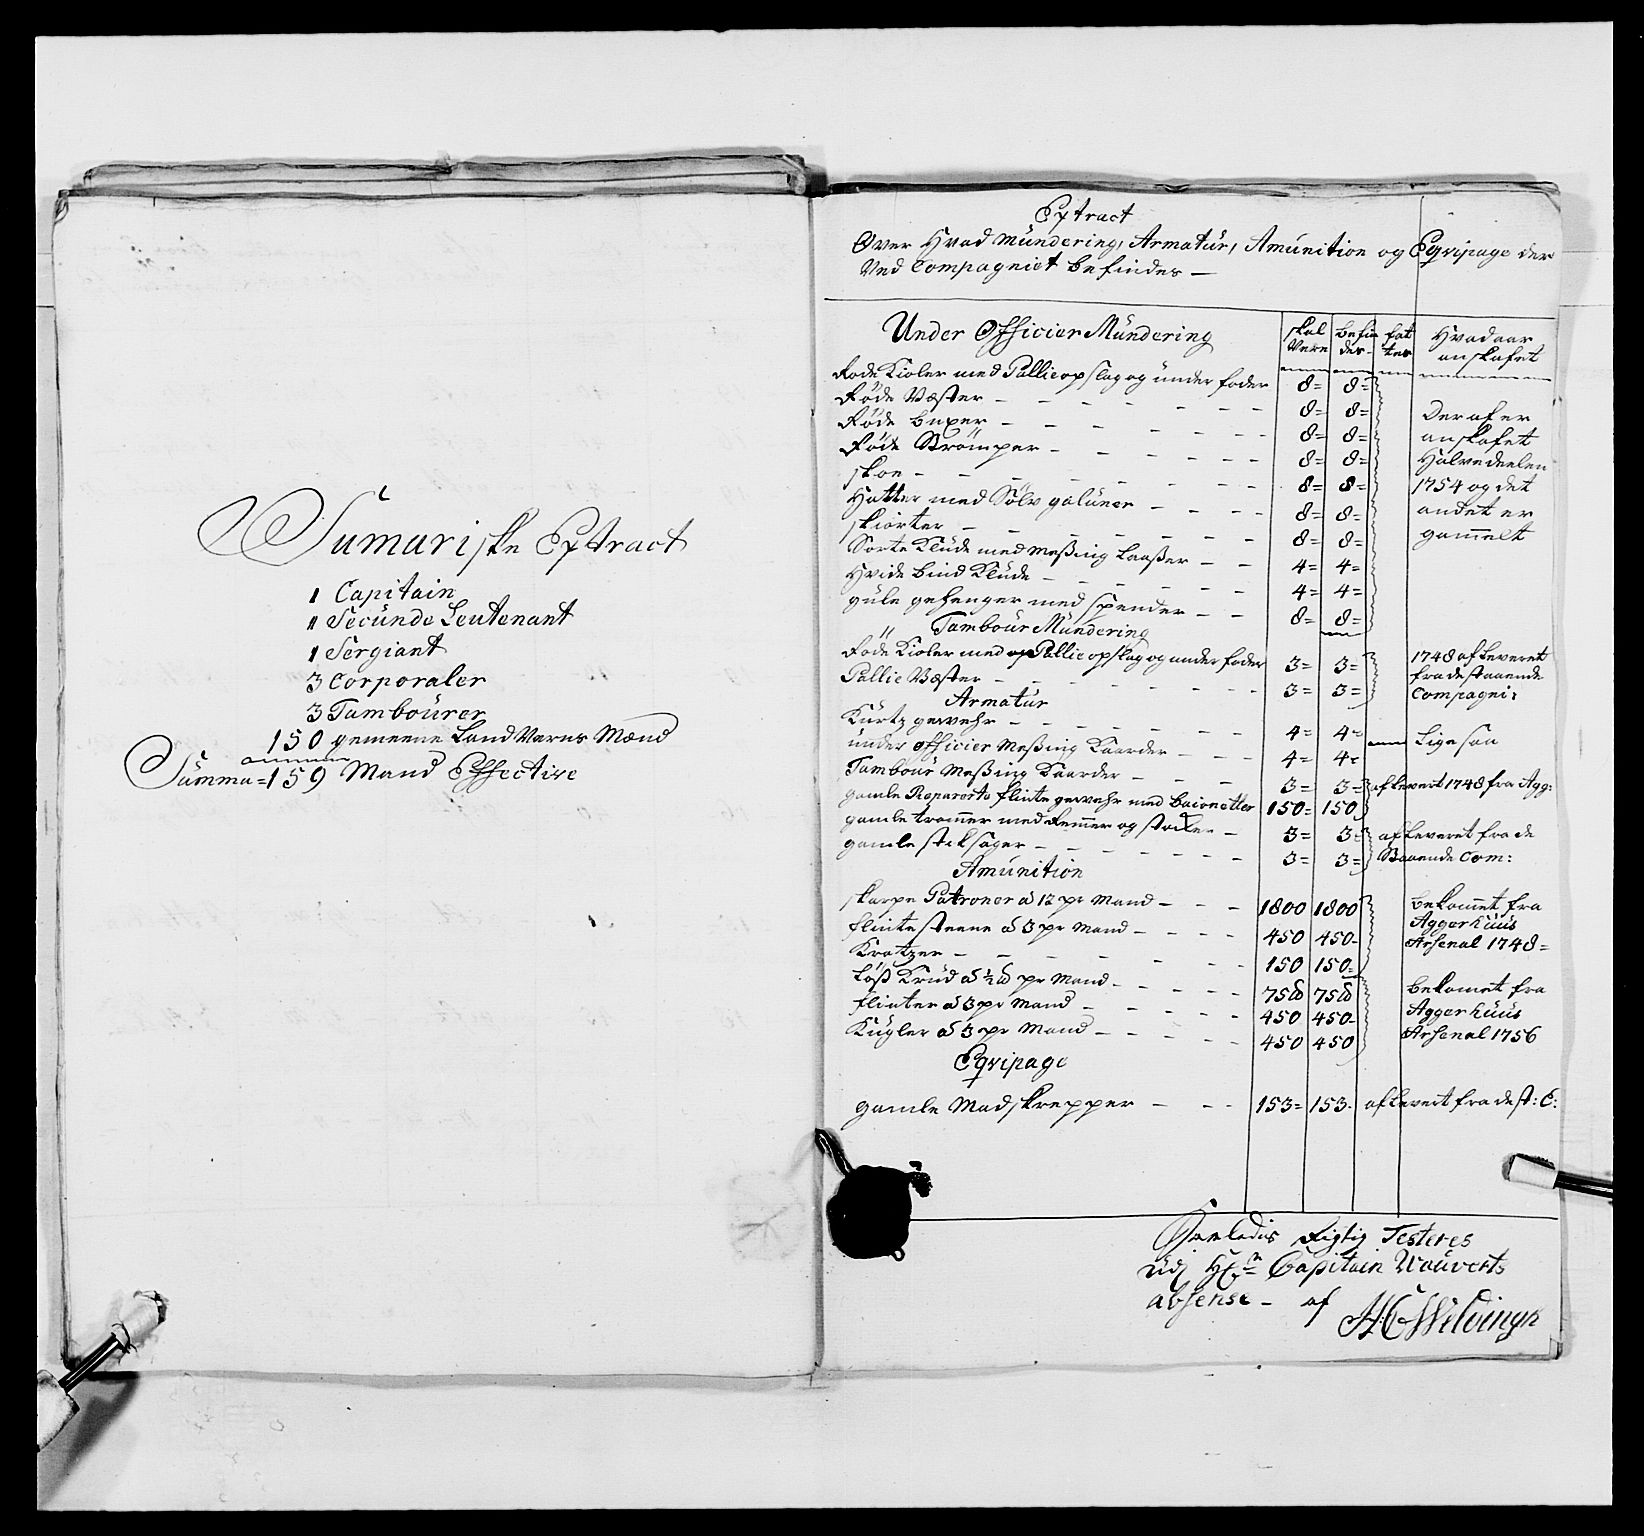 Sumariske Extract
1 Capitain
" Secünde Leutenant
1 Sergiant
3 Corporaler
3 Tambourer
150 gemeene Land Verns Mænd
Summa = 159 Mand Effective
Extract
Over Hvad Mündering, Armatür, Amünition og Eqvipage der
Ved Compagniet befindes —
Under Officier Mündering | skal Vere | befin des - | fat tes | Hvad aar anskafet
Røde Kioler med Pallie opslag og ünder foder 8 = 8 =
Røde Væster - - - - - - - 8 = 8 = Der af er
Røde buxer - - - - - - - 8 = 8 = anskafet
Røde Strømper - - - - - - 8 = 8 = Halvedeelen
skoe - - - - - - - 8 = 8 = 1754 og det
Hatter med Sølv galüner - - - - 8 = 8 = andet er
skiorter - - - - - - - 8 = 8 = gam̅elt
Sorte Klüde med Meßing Laaßer - - 4 = 4 =
Hvide bind Klüde - - - - - 4 = 4 =
güle gehenger med spender - - 8 = 8 =
Tambour Mündering
Røde Kioler med Pallie opslag og under foder 3 = 3 = 1748 afleveret
Pallie Væster - - - - - - - 3 = 3 = fra de staaende Compagni:
Armatur
Kürtz gewehr - - - - - - 4 = 4 =
ünder officier Meßing Kaarder - - 4 = 4 = Lige saa
Tambour Meßing Kaarder - - - - 3 = 3 = aflevert 1748 fra Agg:
gamle Reparerte flinte gewehr med baionetter 150 = 150
gamle trom̅er med Rem̅er og stocker - 3 = 3 = afleveret fra de
gamle stiksager - - - - - - 3 = 3 = Staaende Com:
Amünition
skarpe Patroner a 12 pr Mand - - - 1800 1800 bekom̅et fra
flinte steene a 3 pr Mand - - - - 450 450 - Aggerhüüs
Kratzer - - - - - - - 150 150 - Arsenal 1748 =
Løß Krüd a ½ ℔ pr Mand - - - - 75 ℔ 75 ℔ bekomet fra
flinter a 3 pr Mand - - - - - 450 450 - Aggerhüüs
Kügler a 3 pr Mand - - - - - 450 450 Arsenal 1756
Eqvipage
gamle Madskrepper - - - 153 = 153 - aflevert fra de st: C:
Saaledis Rigtig Testeres
udj Hr Capitain Wauverts
absense - af H C Wilvingh